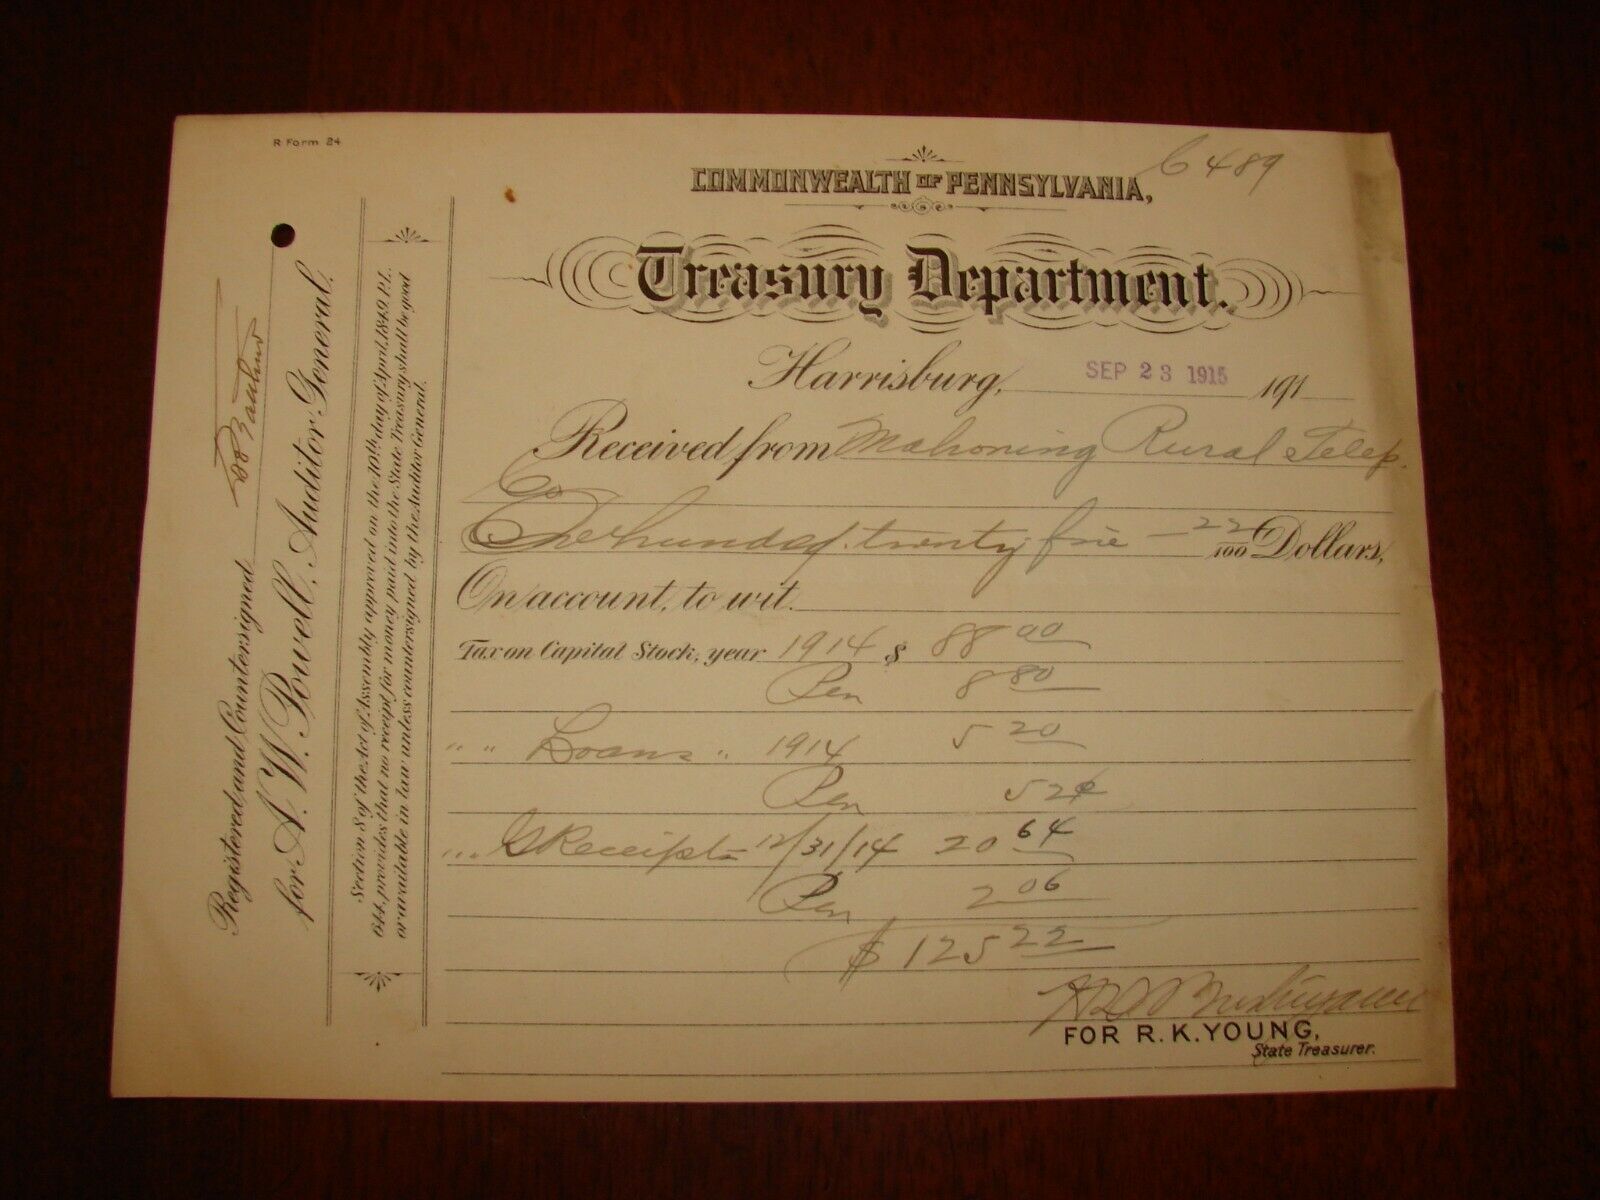 R Form 24
6489
COMMONWEALTH OF PENNSYLVANIA,
Treasury Department.
Harrisburg, SEP 23 1915 191
Received from Mahoning Rural Telep.
Co
One hundred twenty five — 22/100 Dollars,
On account, to wit.
Tax on Capital Stock, year 1914 $ 88 00
Pen 8 80
" " Loans " 1914 5 20
Pen 52¢
" " G Receipts 12/31/14 20 64
Pen 2 06
$ 125 22
FOR R. K. YOUNG,
State Treasurer.
Registered and Countersigned
for A. W. Powell, Auditor General.
Section 8 of the Act of Assembly approved on the 10th day of April, 1849, P.L.
644, provides that no receipt for money paid into the State Treasury shall be good
or available in law unless countersigned by the Auditor General.